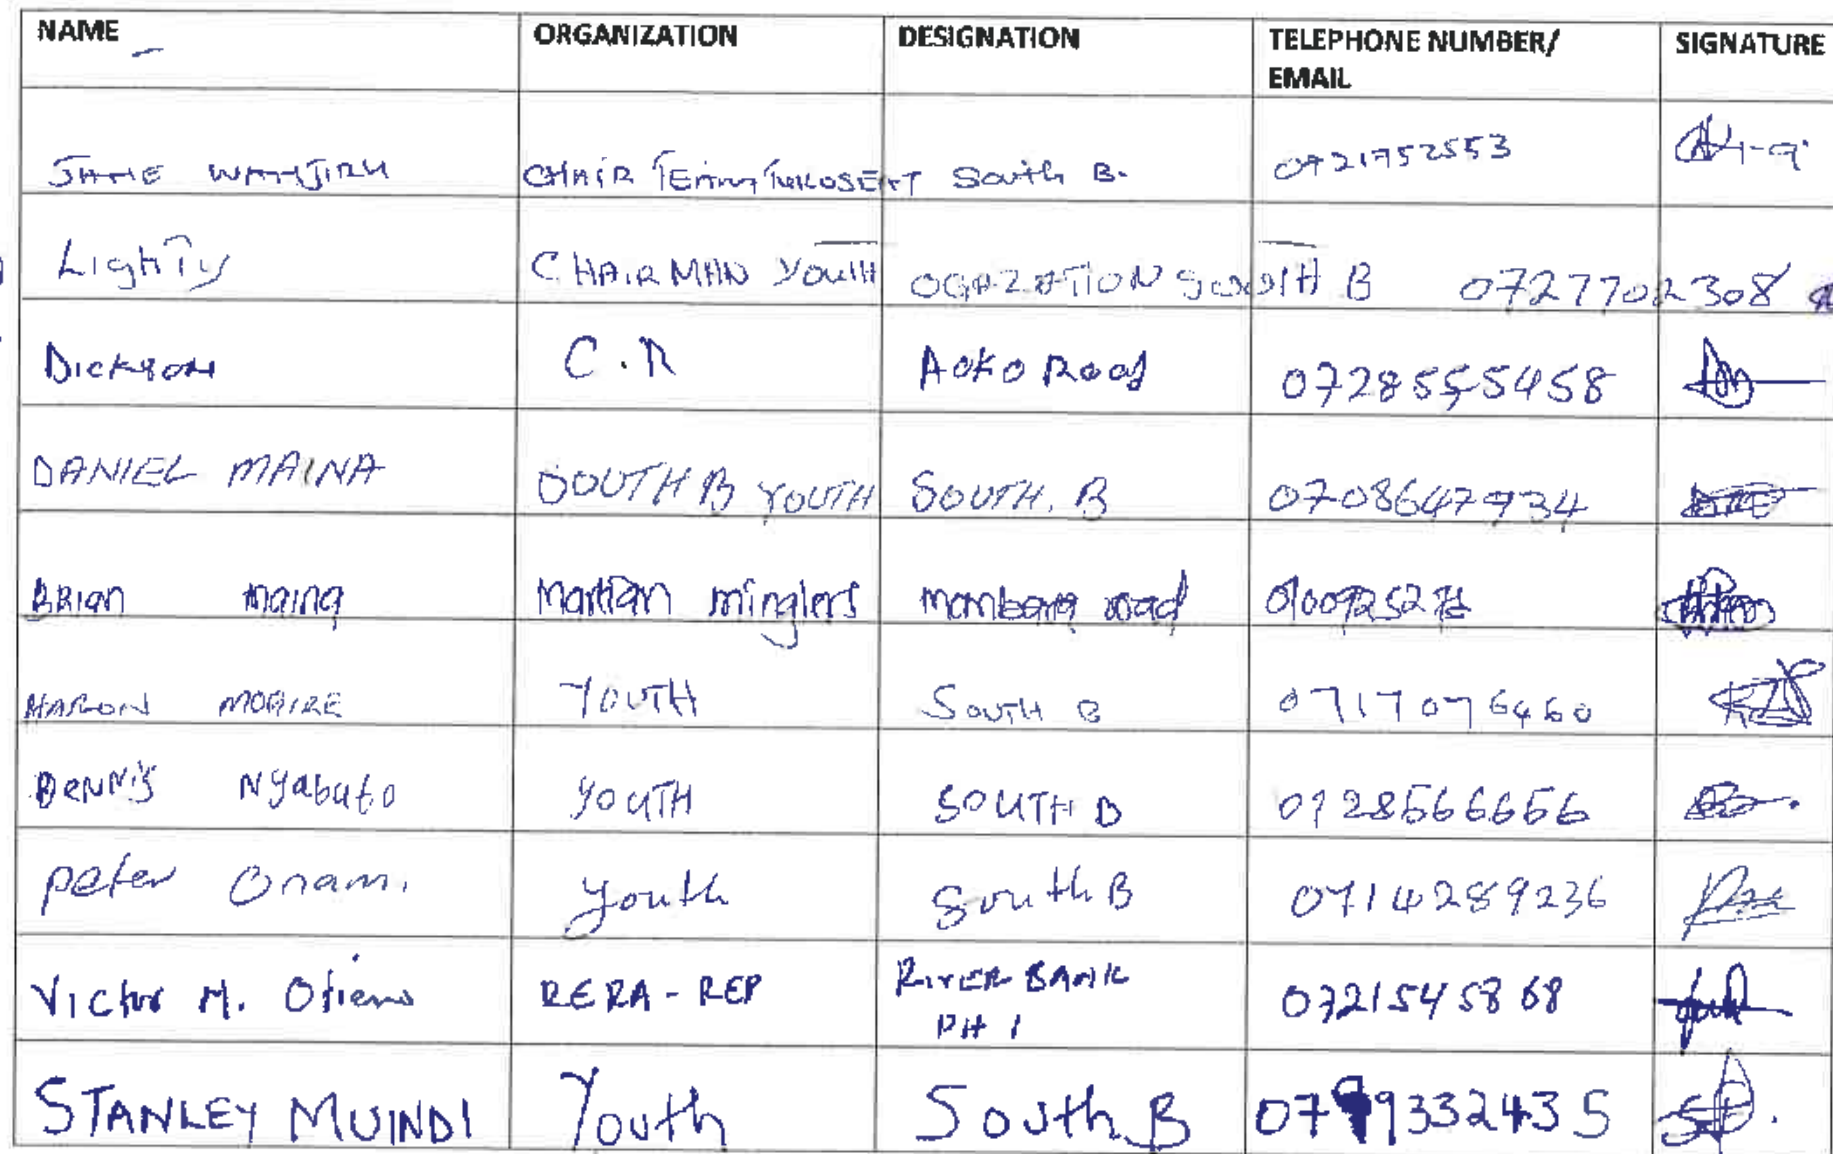 NAME ORGANIZATION DESIGNATION TELEPHONE NUMBER/ EMAIL SIGNATURE
JANE WANJIRU CHAIR South B. 0721752553
Lighty CHAIRMAN YOUTH OGAZATION SOUTH B 0727702308
Dickson C.R Aoko Road 0728555458
DANIEL MAINA SOUTH B YOUTH SOUTH. B 0708647934
BRIAN maina Martian minglers road
HARON MOGIRE YOUTH South B 0717076460
DENNIS Nyabuto YOUTH SOUTH B 0728566656
peter Onam. youth South B 0714289236
Victor M. Otieno RERA-REP RIVER BANK PH 1 0721545868
STANLEY MUINDI Youth South B 0799332435